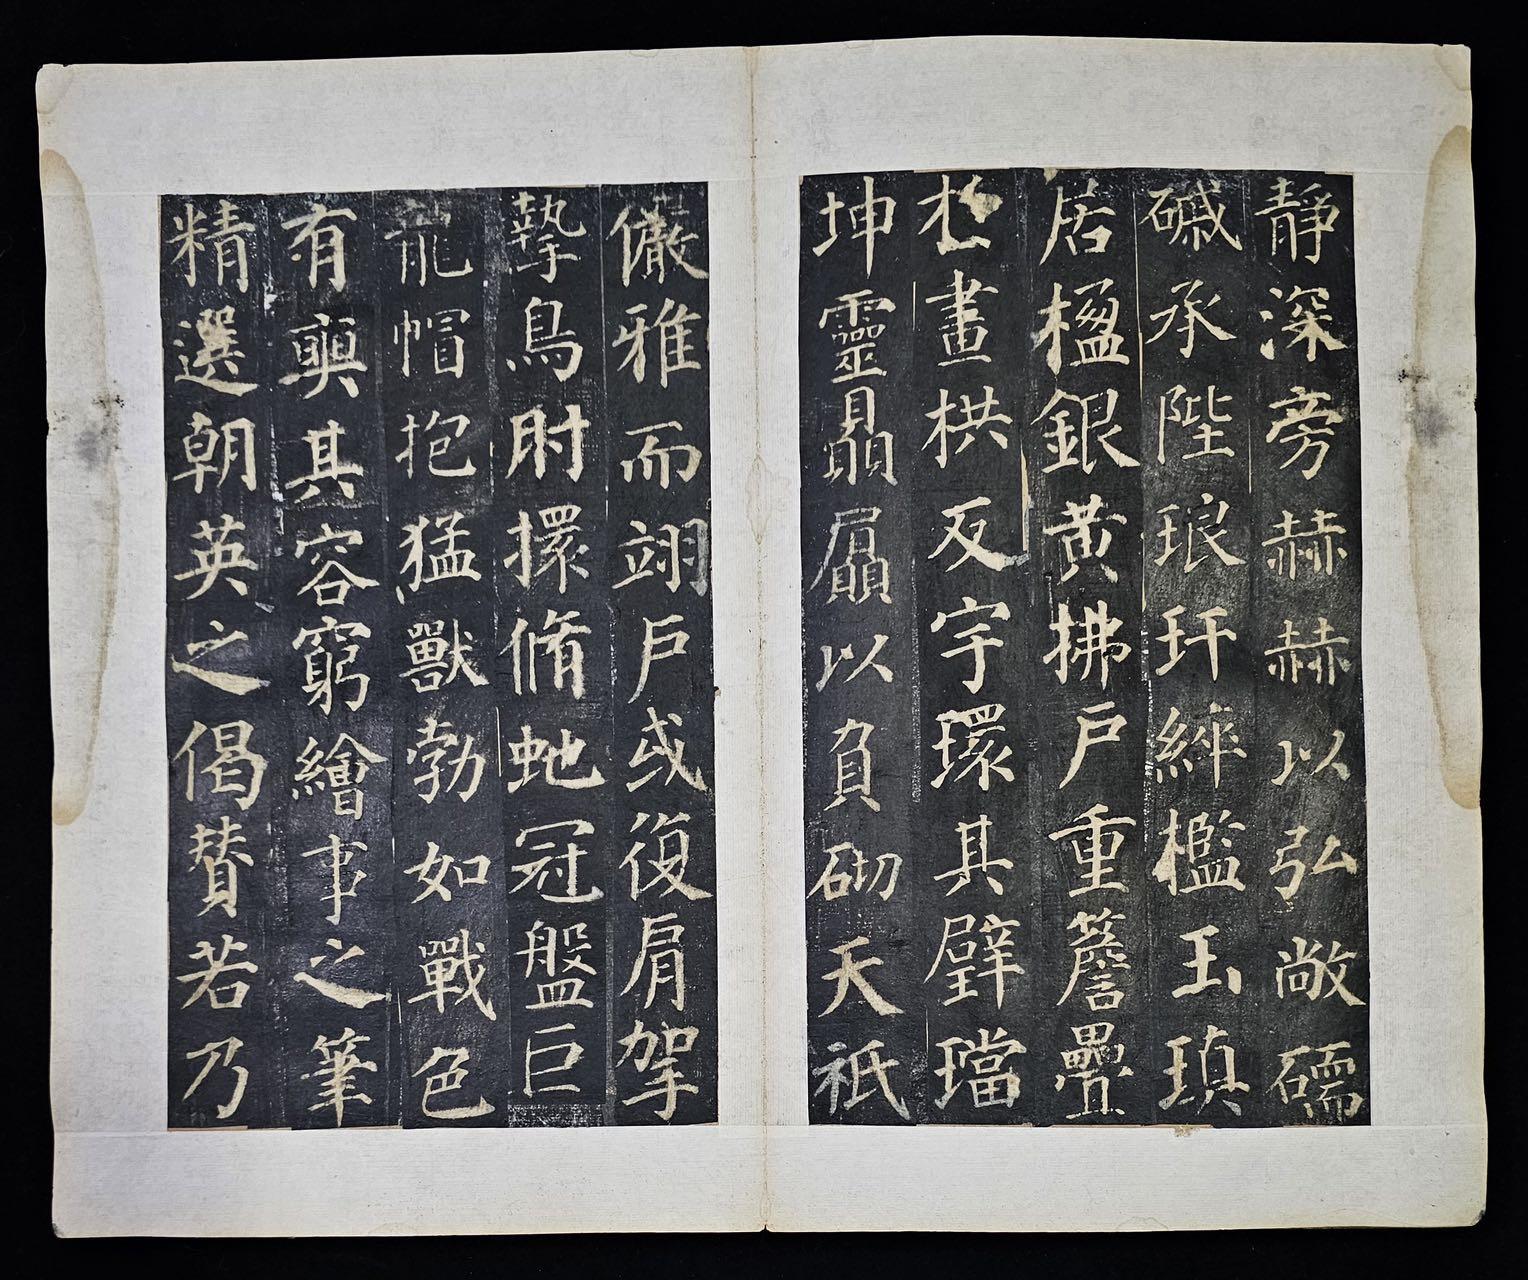 靜深旁赫赫以弘敞礝
碱承陛琅玕綷檻玉瑱
居楹銀黃拂戶重簷疊
於畫栱反宇環其璧璫
坤靈贔屭以負砌天祇
儼雅而翊戶或復肩挐
摯鳥肘擐脩蛇冠盤巨
龍帽抱猛獸勃如戰色
有奭其容窮繪事之筆
精選朝英之偈贊若乃